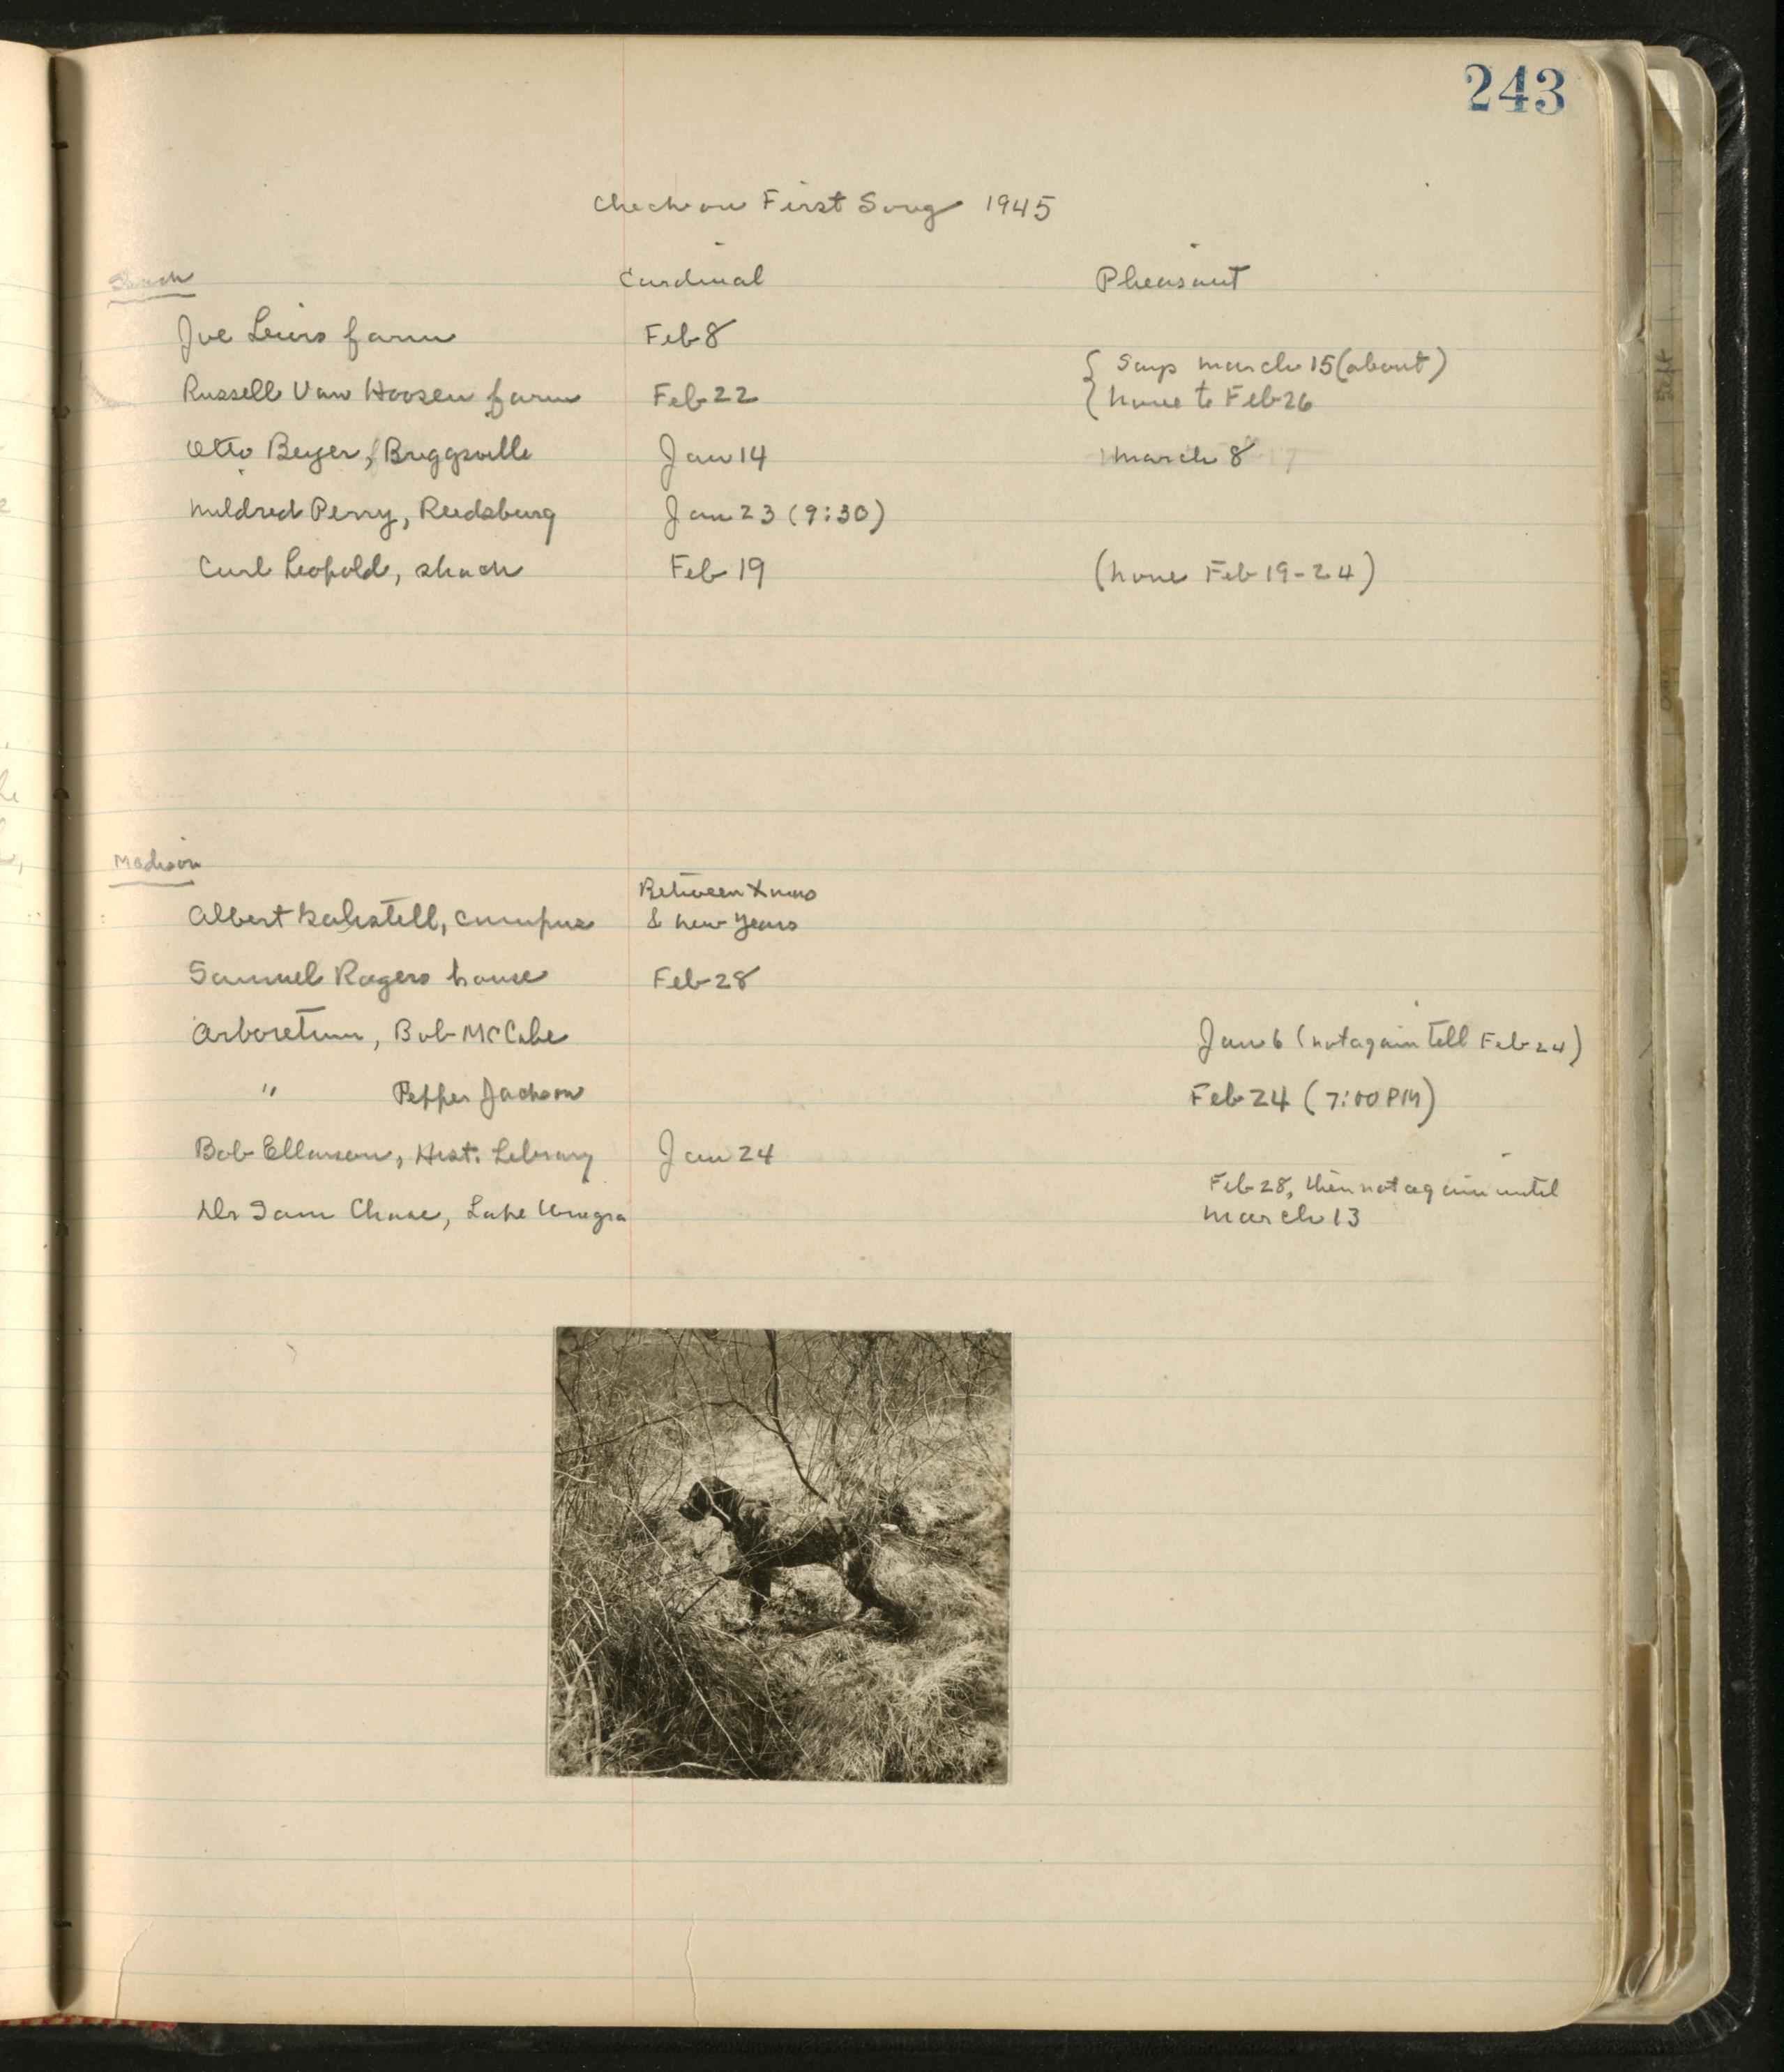 243
Check on First Song 1945
Shack Cardinal Pheasant
Joe Leiers farm Feb 8
Russell Van Hoosen farm Feb 22 { Says March 15 (about)
{ None to Feb 26
Otto Beyer, Briggsville Jan 14 March 8
Mildred Perry, Reedsburg Jan 23 (9:30)
Carl Leopold, shack Feb 19 (None Feb 19-24)
Madison
Between Xmas
Albert campus & New Years
Samuel Rogers house Feb 28
Arboretum, Bob McCabe Jan 6 (not again till Feb 24)
" Pepper Jackson Feb 24 (7:00 PM)
Bob Ellarson, Hist. Library Jan 24
Feb 28, then not again until
Dr Sam Chase, Lake Wingra March 13
Sept